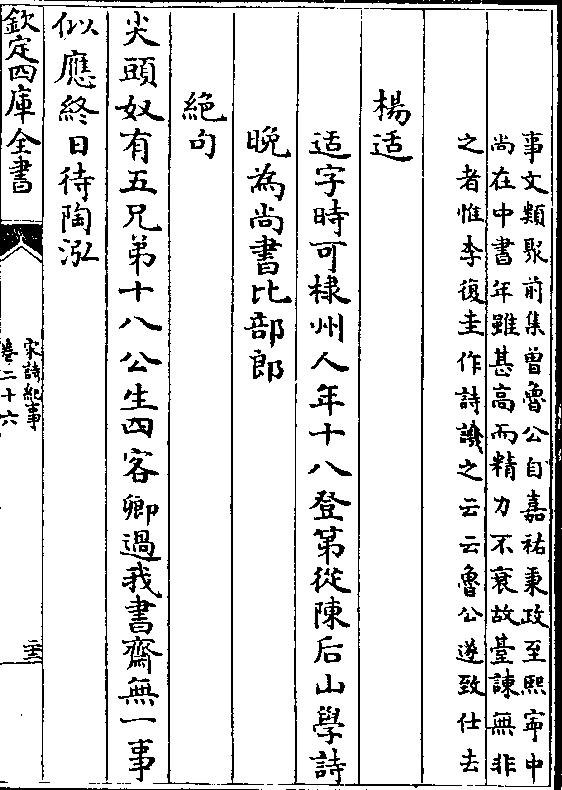 事文類聚前集曾魯公自嘉祐秉政至熙寕中
尚在中書年雖甚高而精力不衰故臺諫無非
之者惟李復圭作詩譏之云云魯公遂致仕去
楊适
适字時可棣州人年十八登第從陳后山學詩
晩為尚書比部郎
絶句
尖頭奴有五兄弟十八公生四客卿過我書齋無一事
似應終日待陶泓
欽定四庫全書
宋詩紀事
卷二十六
二十三